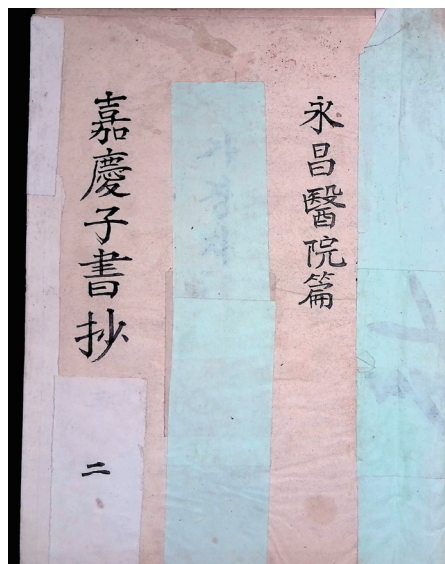 永昌醫院篇
嘉慶子書抄
二